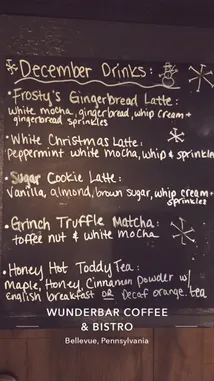 December Drinks:
Frosty's Gingerbread Latte:
white mocha, gingerbread, whip cream +
gingerbread sprinkles
White Christmas Latte:
Peppermint white mocha, whip & sprinkles
Sugar Cookie Latte:
Vanilla, almond, brown sugar, whip cream +
sprinkles
Grinch Truffle Matcha:
toffee nut & white mocha
Honey Hot Toddy Tea:
Maple, Honey, Cinnamon Powder w/
english breakfast or Decaf orange tea
WUNDERBAR COFFEE
& BISTRO
Bellevue, Pennsylvania